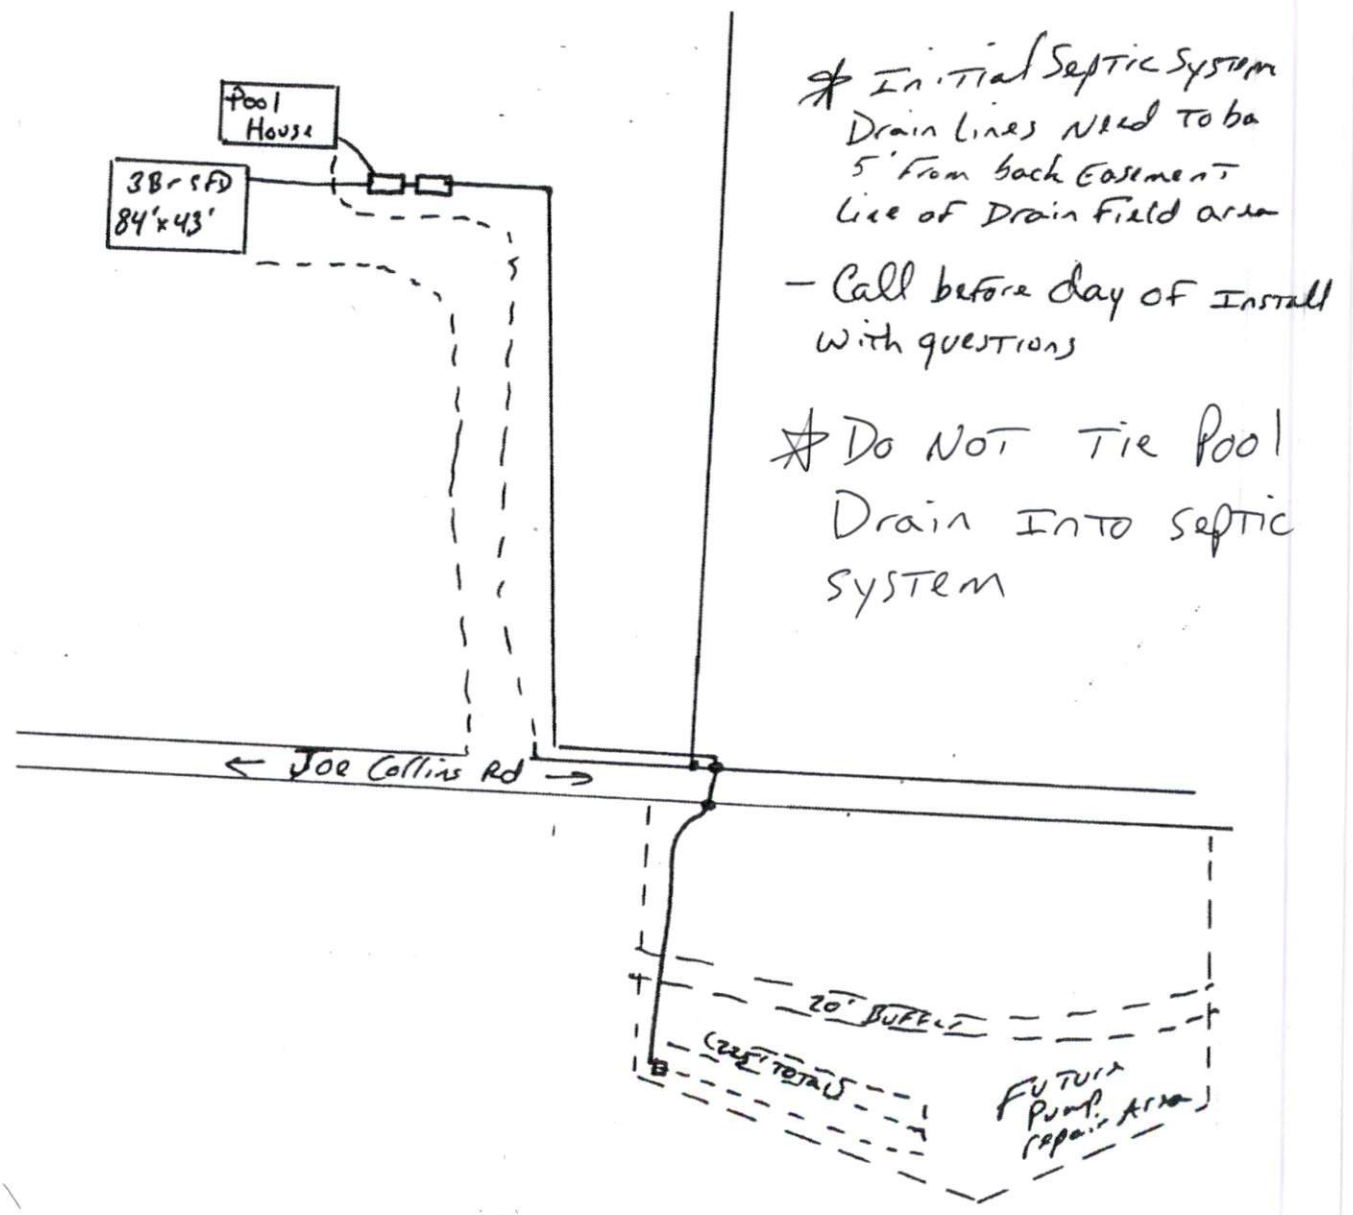 * Initial Septic System
Drain Lines Need To be
5' From back Easement
Line of Drain Field area
- Call before day of Install
with questions
* Do NOT Tie Pool
Drain Into Septic
System
Pool
House
3Br SFD
84'x43'
← Joe Collins Rd →
20' Buffer
(225' TOTAL)
Future
Pump
repair Area